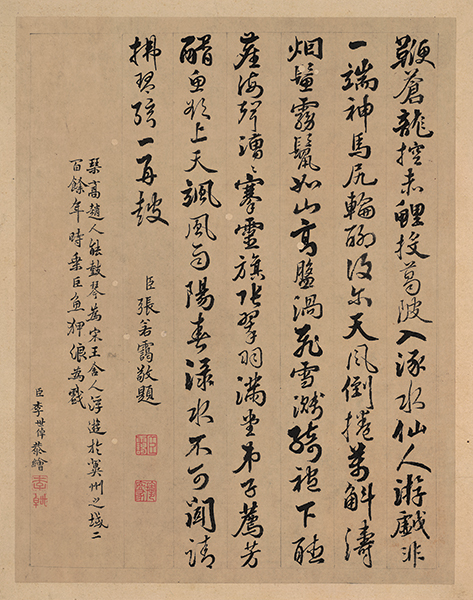 鞭蒼龍控赤鯉投葛陂入涿水仙人游戲非
一端神馬尻輪聊復尔天風倒捲萬斛濤
烟鬟霧鬣如山高盤渦飛雪濺下
崖海聲漕〻搴靈旗張翠羽滿堂弟子薦芳
醑魚上天颯風雨陽春淥水不可聞請
拂琴弦一再鼓
臣張若靄敬題
琴高趙人能鼓琴為宋王舍人浮遊於冀州之域二
百餘年時乘巨魚狎浪為戲
臣李世倬恭繪